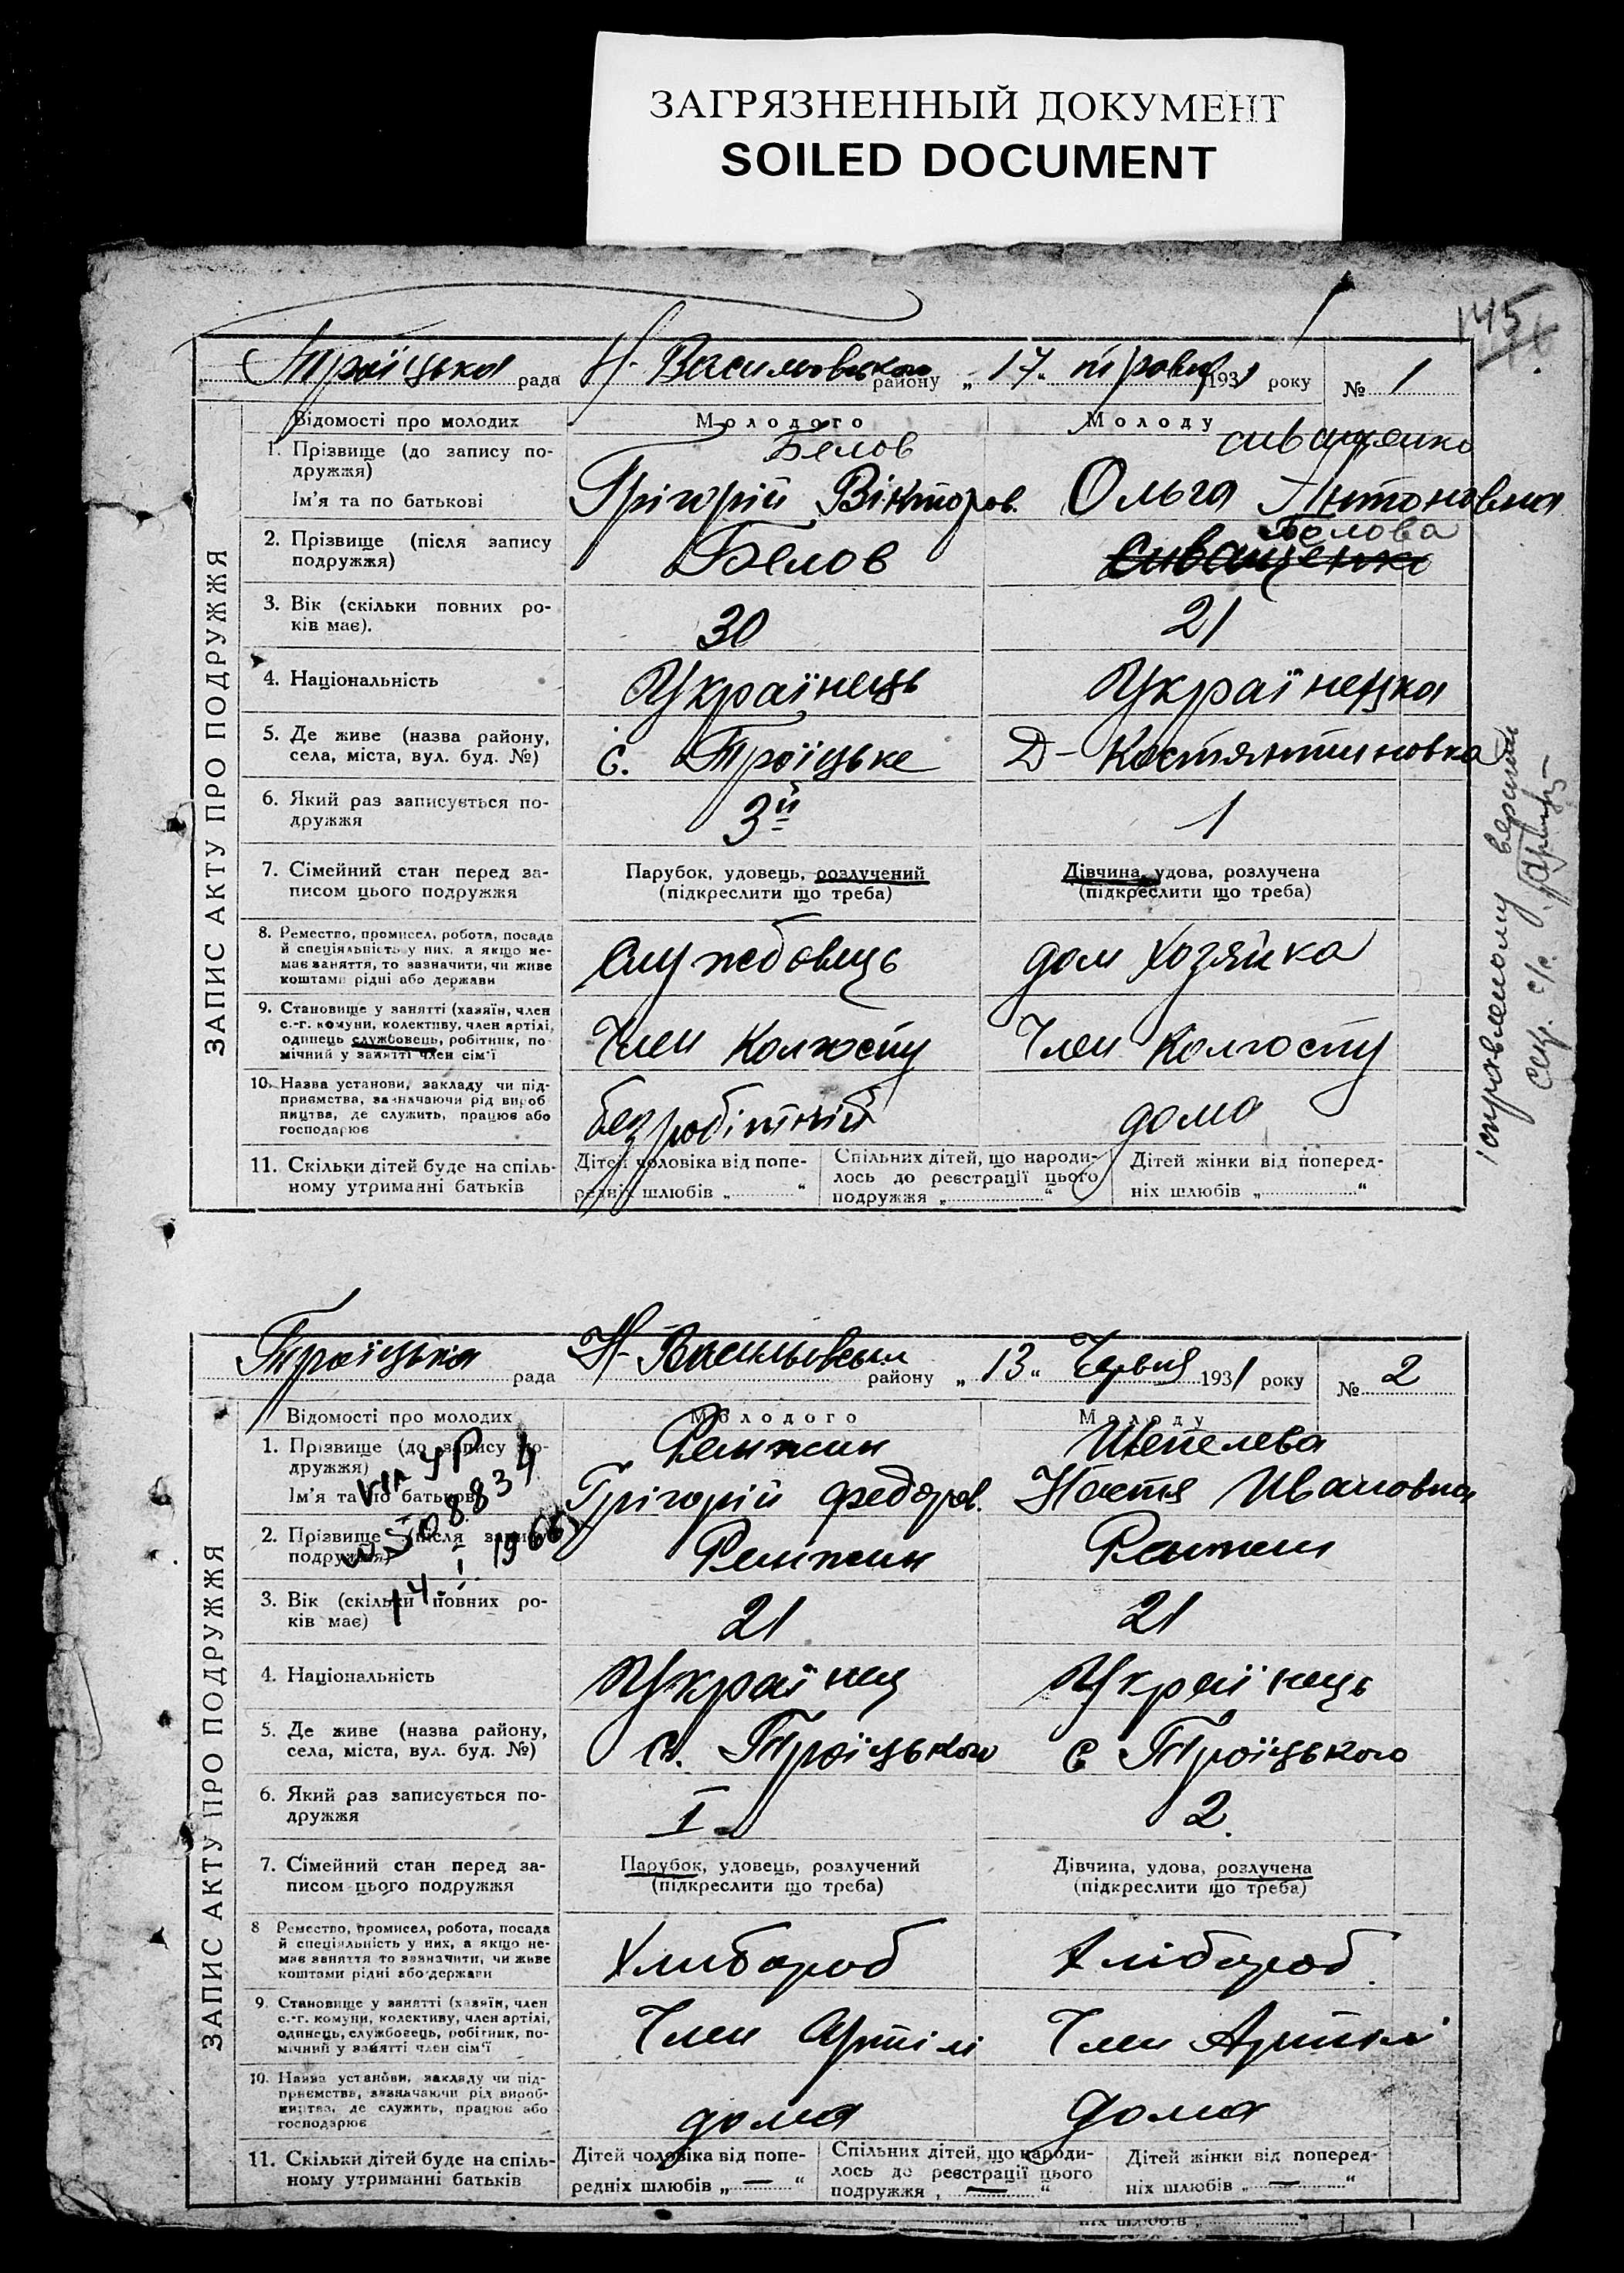 ЗАГРЯЗНЕННЫЙ ДОКУМЕНТ
SOILED DOCUMENT
145
Троїцька рада Н-Василовського району „17“ травня 1931 року № 1
ЗАПИС АКТУ ПРО ПОДРУЖЖЯ
Відомості про молодих Молодого Молоду
1. Прізвище (до запису по-
дружжя) Белов Сиващенко
Ім'я та по батькові Грігорій Вікторов. Ольга Антоновна
2. Прізвище (після запису
подружжя) Белов Сиващенко Белова
3. Вік (скільки повних ро-
ків має). 30 21
4. Національність Українець Українецка
5. Де живе (назва району,
села, міста, вул. буд. №) с. Троїцьке Д-Костянтиновка
6. Який раз записується по-
дружжя 3й 1
7. Сімейний стан перед за-
писом цього подружжя
Парубок, удовець, розлучений
(підкреслити що треба)
Дівчина, удова, розлучена
(підкреслити що треба)
8. Ремество, промисел, робота, посада
й спеціяльність у них, а якщо не-
має заняття, то зазначити, чи живе
коштами рідні або держави
Службовець дом Хозяйка
9. Становище у занятті (хазяїн, член
с.-г. комуни, колективу, член артілі,
одинець службовець, робітник, по
мічний у занятті член сім'ї
Член Колгоспу Член Колгоспу
10. Назва установи, закладу чи під-
приємства, зазначаючи рід вироб
ництва, де служить, працює або
господарює
безробітній дома
11. Скільки дітей буде на спіль-
ному утриманні батьків
Дітей чоловіка від попе-
редніх шлюбів „ “
Спільних дітей, що народи-
лось до реєстрації цього
подружжя „ “
Дітей жінки від поперед-
ніх шлюбів „ “
сек. с/с.
Троїцька рада Н-Васильовськ району „13“ Червня 1931 року № 2
ЗАПИС АКТУ ПРО ПОДРУЖЖЯ
Відомості про молодих Молодого Молоду
1. Прізвище (до запису по-
дружжя) Шепелева
Ім'я та по батькові Грігорій Федоров. Настя Ивановна
2. Прізвище (після запису
подружжя)
3. Вік (скільки повних ро-
ків має) 21 21
4. Національність Українец Українець
5. Де живе (назва району,
села, міста, вул. буд. №) с. Троїцького с Троїцького
6. Який раз записується по-
дружжя I 2.
7. Сімейний стан перед за-
писом цього подружжя
Парубок, удовець, розлучений
(підкреслити що треба)
Дівчина, удова, розлучена
(підкреслити що треба)
8 Ремество, промисел, робота, посада
й спеціяльність у них, а якщо не-
має заняття то зазначити, чи живе
коштами рідні або держави
Хлибороб Хлібороб.
9. Становище у занятті (хазяїн, член
с.-г. комуни, колективу, член артілі,
одинець, службовець, робітник, по-
мічний у занятті член сім'ї
Член Артілі Член Артілі
10. Назва установи, закладу чи під-
приємства, зазначаючи рід вироб-
ництва, де служить, працює або
господарює
дома дома
11. Скільки дітей буде на спіль-
ному утриманні батьків
Дітей чоловіка від попе-
редніх шлюбів „ — “
Спільних дітей, що народи-
лось до реєстрації цього
подружжя „ — “
Дітей жінки від поперед-
ніх шлюбів „ — “
ніх шлюбів „ “